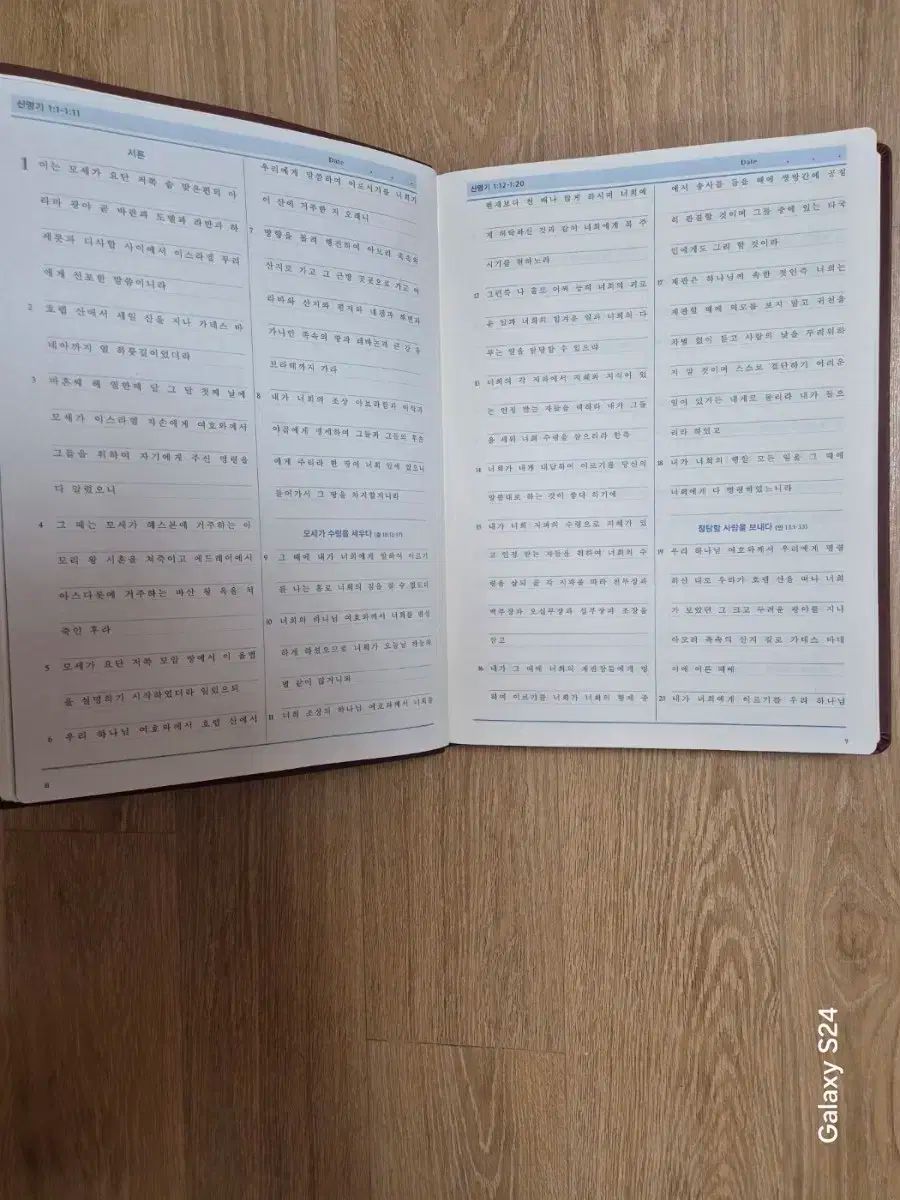 신명기 1:1-1:11
서론
1 이는 모세가 요단 저쪽 숩 맞은편의 아
라바 광야 곧 바란과 도벨과 라반과 하
세롯과 디사합 사이에서 이스라엘 무리
에게 선포한 말씀이니라
2 호렙 산에서 세일 산을 지나 가데스 바
네아까지 열 하룻길이었더라
3 마흔째 해 열한째 달 그 달 첫째 날에
모세가 이스라엘 자손에게 여호와께서
그들을 위하여 자기에게 주신 명령을
다 알렸으니
4 그 때는 모세가 헤스본에 거주하는 아
모리 왕 시혼을 쳐죽이고 에드레이에서
아스다롯에 거주하는 바산 왕 옥을 쳐
죽인 후라
5 모세가 요단 저쪽 모압 땅에서 이 율법
을 설명하기 시작하였더라 일렀으되
6 우리 하나님 여호와께서 호렙 산에서
8
Date . . .
우리에게 말씀하여 이르시기를 너희가
이 산에 거주한 지 오래니
7 방향을 돌려 행진하여 아모리 족속의
산지로 가고 그 근방 곳곳으로 가고 아
라바와 산지와 평지와 네겝과 해변과
가나안 족속의 땅과 레바논과 큰 강 유
브라데까지 가라
8 내가 너희의 조상 아브라함과 이삭과
야곱에게 맹세하여 그들과 그들의 후손
에게 주리라 한 땅이 너희 앞에 있으니
들어가서 그 땅을 차지할지니라
모세가 수령을 세우다 (출 18:13-27)
9 그 때에 내가 너희에게 말하여 이르기
를 나는 홀로 너희의 짐을 질 수 없도다
10 너희의 하나님 여호와께서 너희를 번성
하게 하셨으므로 너희가 오늘날 하늘의
별 같이 많거니와
11 너희 조상의 하나님 여호와께서 너희를
신명기 1:12-1:20
현재보다 천 배나 많게 하시며 너희에
게 허락하신 것과 같이 너희에게 복 주
시기를 원하노라
12 그런즉 나 홀로 어찌 능히 너희의 괴로
운 일과 너희의 힘겨운 일과 너희의 다
투는 일을 담당할 수 있으랴
13 너희의 각 지파에서 지혜와 지식이 있
는 인정 받는 자들을 택하라 내가 그들
을 세워 너희 수령을 삼으리라 한즉
14 너희가 내게 대답하여 이르기를 당신의
말씀대로 하는 것이 좋다 하기에
15 내가 너희 지파의 수령으로 지혜가 있
고 인정 받는 자들을 취하여 너희의 수
령을 삼되 곧 각 지파를 따라 천부장과
백부장과 오십부장과 십부장과 조장을
삼고
16 내가 그 때에 너희의 재판장들에게 명
하여 이르기를 너희가 너희의 형제 중
Date . . .
에서 송사를 들을 때에 쌍방간에 공정
히 판결할 것이며 그들 중에 있는 타국
인에게도 그리 할 것이라
17 재판은 하나님께 속한 것인즉 너희는
재판할 때에 외모를 보지 말고 귀천을
차별 없이 듣고 사람의 낯을 두려워하
지 말 것이며 스스로 결단하기 어려운
일이 있거든 내게로 돌리라 내가 들으
리라 하였고
18 내가 너희의 행할 모든 일을 그 때에
너희에게 다 명령하였느니라
정탐할 사람을 보내다 (민 13:1-33)
19 우리 하나님 여호와께서 우리에게 명령
하신 대로 우리가 호렙 산을 떠나 너희
가 보았던 그 크고 두려운 광야를 지나
아모리 족속의 산지 길로 가데스 바네
아에 이른 때에
20 내가 너희에게 이르기를 우리 하나님
9
Galaxy S24